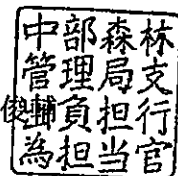 中部森林
管理局支
俊輔
負担行
為担当官